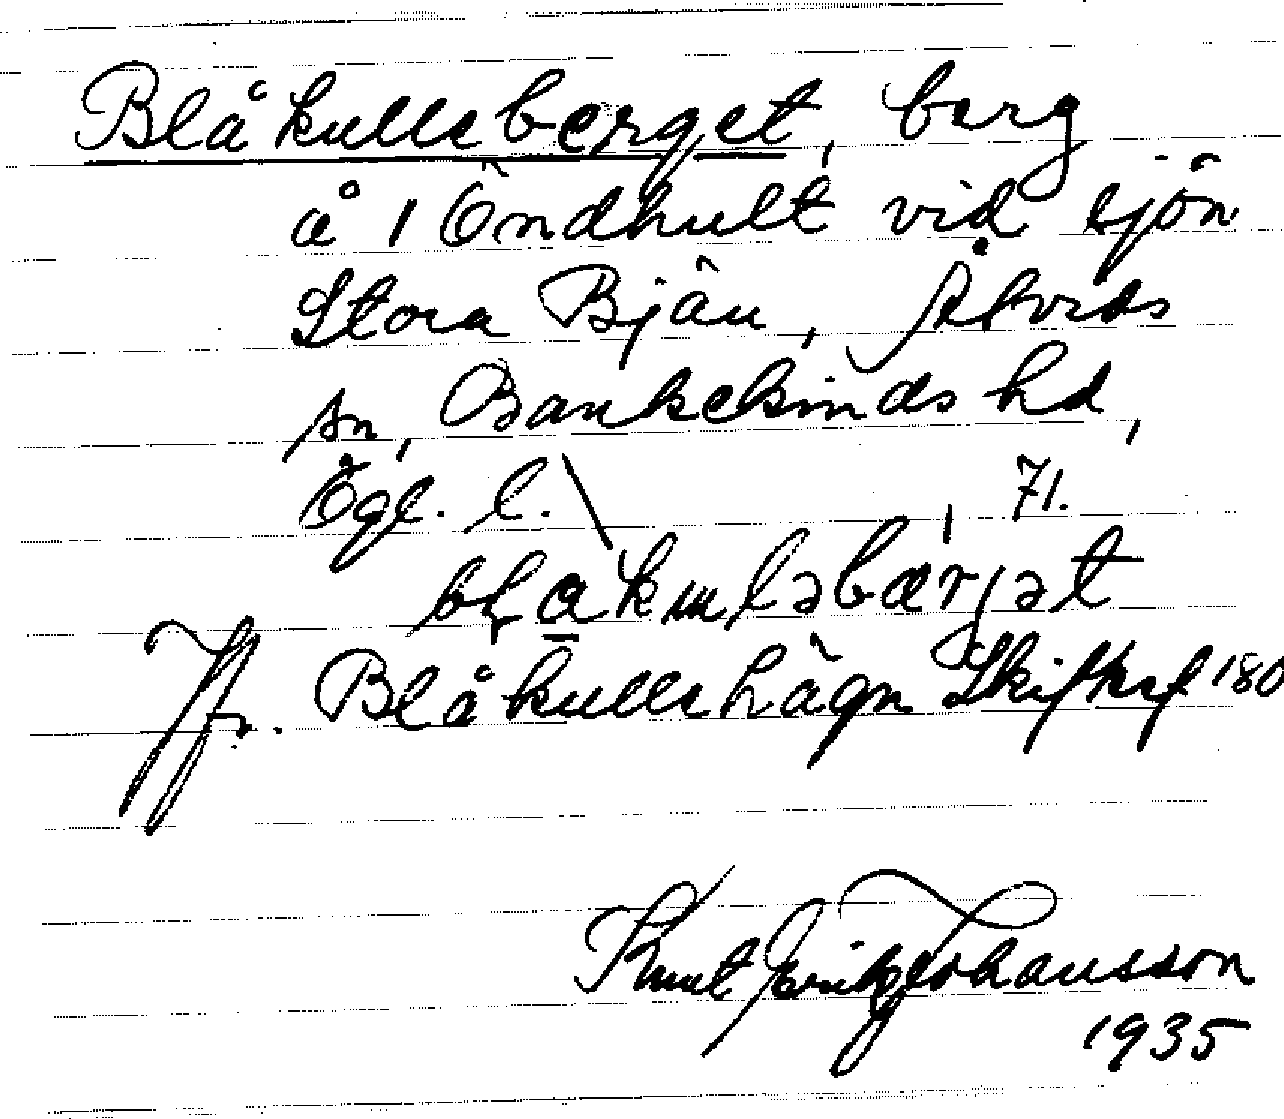 Blåkulleberget, berg
å 1 Öndhult vid sjön
Stora Bjän, Åtvids
sn, Bankekinds hd,
Ögl. l. 71.
Jfr. Blåkullehägn Skifksf 180
Knut Erik Johansson
1935